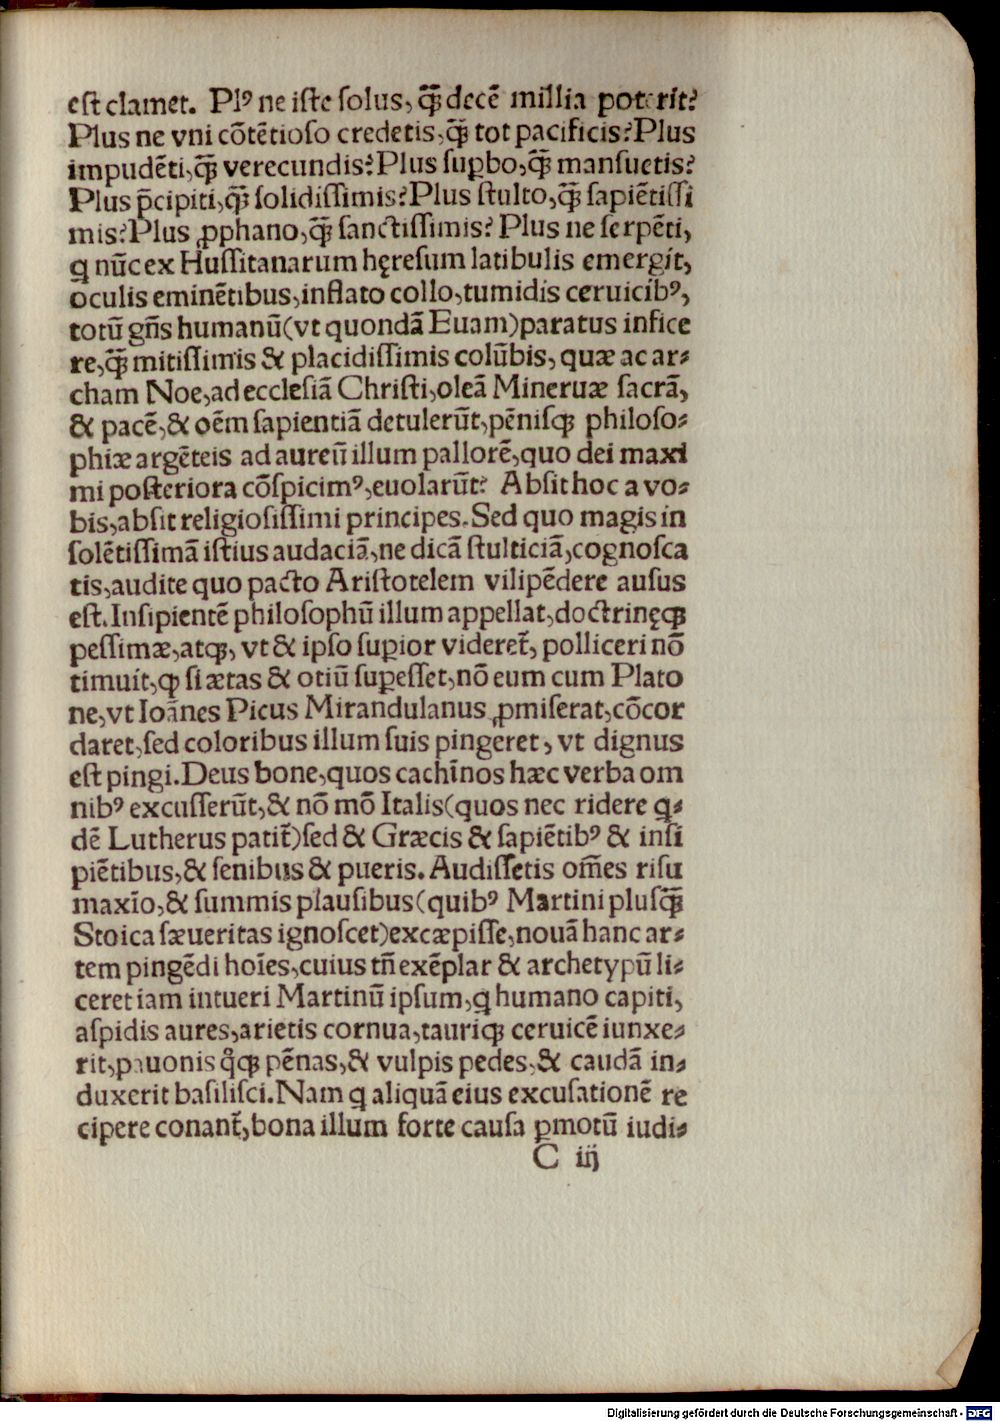 est clamet. Plꝰ ne iste solus, q̃ꝫ decẽ millia poterit?
Plus ne vni cõtẽtioso credetis, q̃ꝫ tot pacificis? Plus
impudẽti, q̃ꝫ verecundis? Plus suꝑbo, q̃ꝫ mansuetis?
Plus p̃cipiti, q̃ꝫ solidissimis? Plus stulto, q̃ꝫ sapiẽtissi
mis? Plus ꝓphano, q̃ꝫ sanctissimis? Plus ne serpẽti,
q nũc ex Hussitanarum hęresum latibulis emergit,
oculis eminẽtibus, inflato collo, tumidis ceruicibꝰ,
totũ gñs humanũ (vt quondã Euam) paratus infice
re, q̃ꝫ mitissimis & placidissimis colũbis, quæ ac ar-
cham Noe, ad ecclesiã Christi, oleã Mineruæ sacrã,
& pacẽ, & oẽm sapientiã detulerũt, pẽnisqꝫ philoso-
phiæ argẽteis ad aureũ illum pallorẽ, quo dei maxi
mi posteriora cõspicimꝰ, euolarũt? Absit hoc a vo-
bis, absit religiosissimi principes. Sed quo magis in
solẽtissimã istius audaciã, ne dicã stulticiã, cognosca
tis, audite quo pacto Aristotelem vilipẽdere ausus
est. Insipientẽ philosophũ illum appellat, doctrinęqꝫ
pessimæ, atqꝫ, vt & ipso suꝑior videret̃, polliceri nõ
timuit, ꝙ si ætas & otiũ suꝑesset, nõ eum cum Plato
ne, vt Ioãnes Picus Mirandulanus ꝓmiserat, cõcor
daret, sed coloribus illum suis pingeret, vt dignus
est pingi. Deus bone, quos cachĩnos hæc verba om
nibꝰ excusserũt, & nõ mõ Italis (quos nec ridere q-
dẽ Lutherus patit̃) sed & Græcis & sapiẽtibꝰ & insi
piẽtibus, & senibus & pueris. Audissetis om̃es risu
maxĩo, & summis plausibus (quibꝰ Martini plusq̃ꝫ
Stoica sæueritas ignoscet) excæpisse, nouã hanc ar-
tem pingẽdi hoĩes, cuius tñ exẽplar & archetypũ li-
ceret iam intueri Martinũ ipsum, q humano capiti,
aspidis aures, arietis cornua, tauriqꝫ ceruicẽ iunxe-
rit, pauonis qͦqꝫ pẽnas, & vulpis pedes, & caudã in-
duxerit basilisci. Nam q aliquã eius excusationẽ re
cipere conant̃, bona illum forte causa ꝑmotũ iudi-
C iij
Digitalisierung gefördert durch die Deutsche Forschungsgemeinschaft - DFG